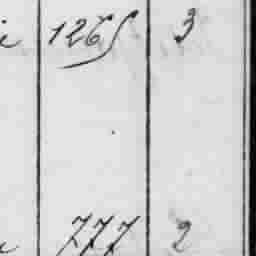 1265 3
777 2